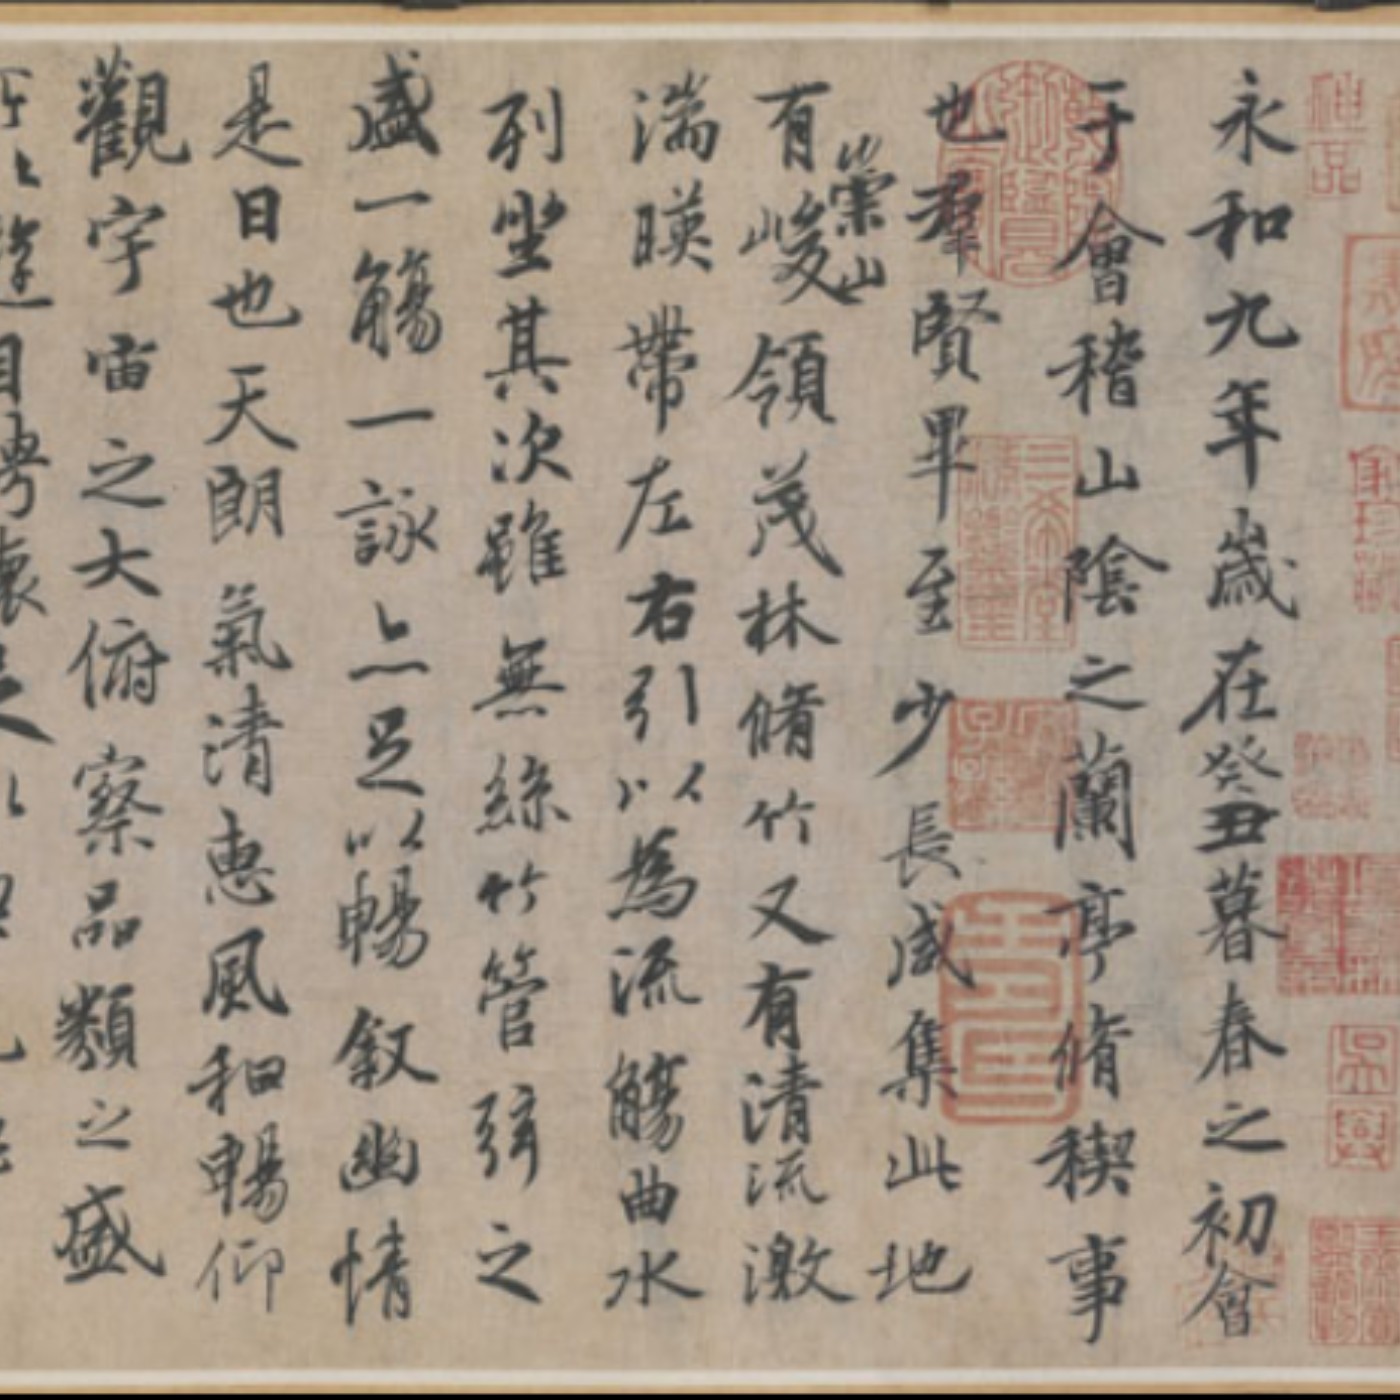 永和九年歲在癸丑暮春之初會
于會稽山陰之蘭亭脩稧事
也羣賢畢至少長咸集此地
有崇山峻領茂林脩竹又有清流激
湍暎帶左右引以為流觴曲水
列坐其次雖無絲竹管弦之
盛一觴一詠亦足以暢敘幽情
是日也天朗氣清惠風和暢仰
觀宇宙之大俯察品類之盛
所以遊目騁懷足以極視聽